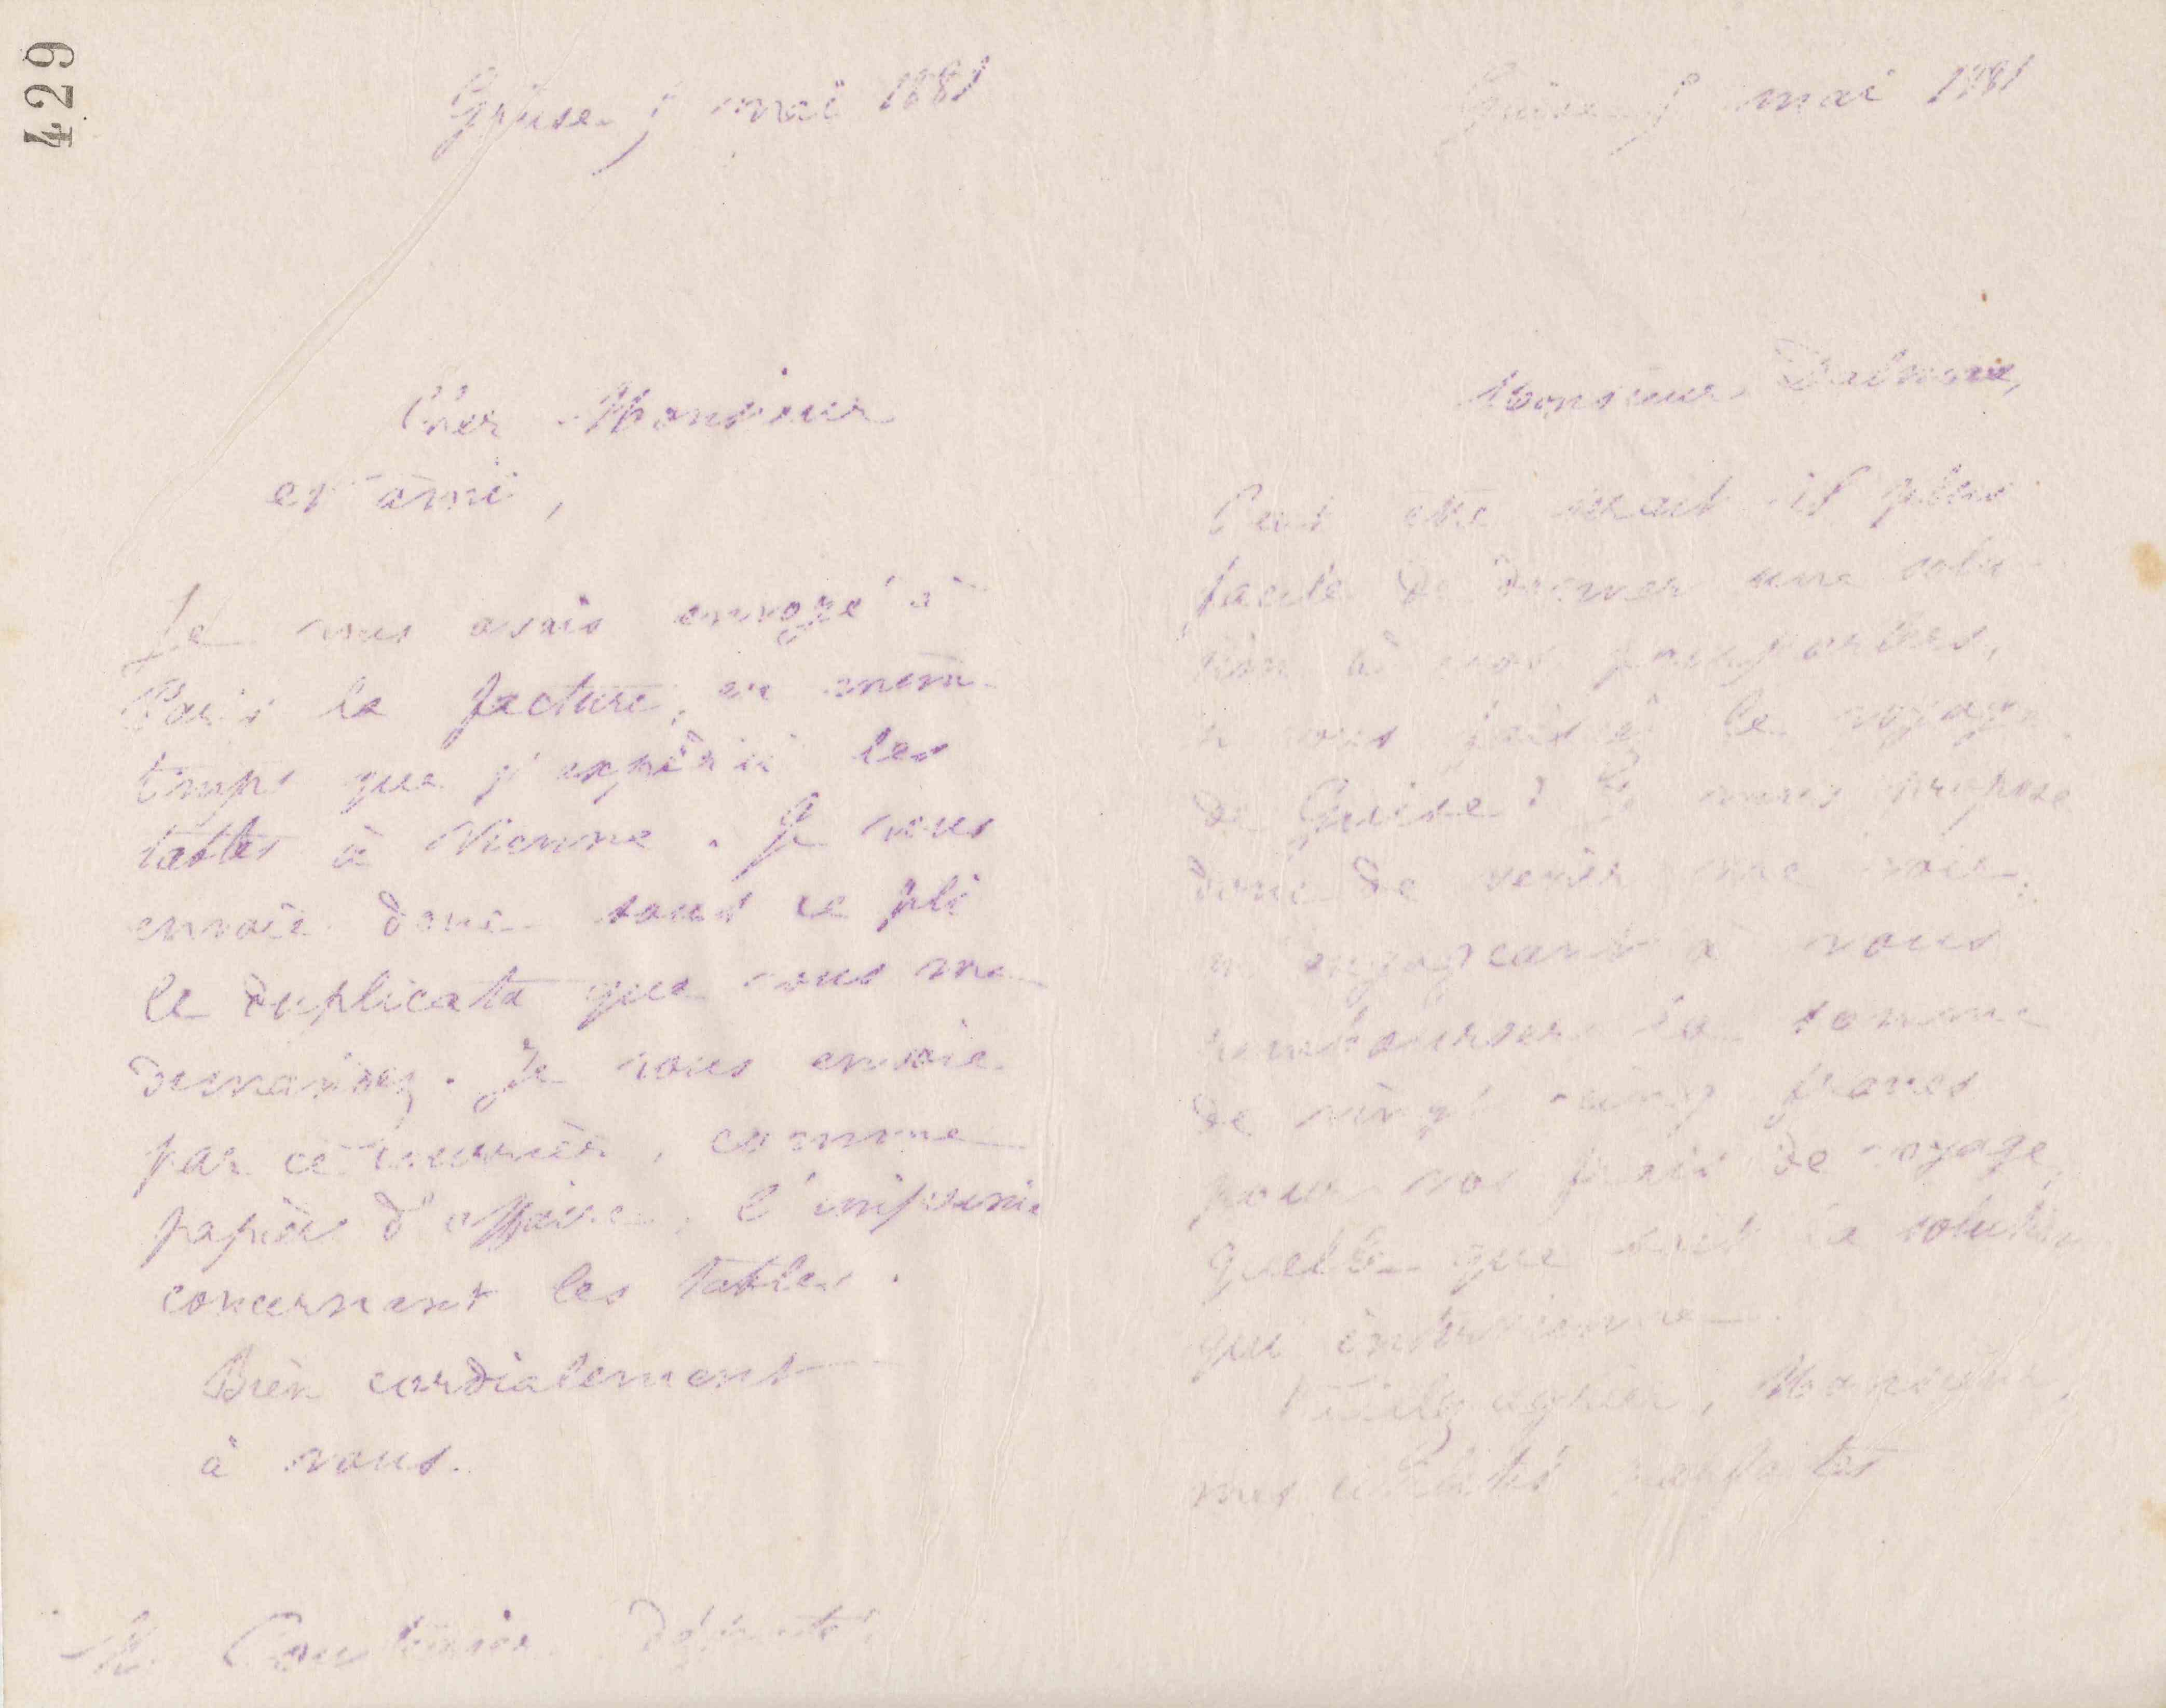 429
Guise, 5 mai 1881
Cher Monsieur
et ami,
Je vous avais envoyé à
Paris la facture, en même
temps que j'expédiai les
tables à Vienne. Je vous
envoie donc sous ce pli
le duplicata que vous me
demandez. Je vous envoie
par ce courrier, comme
papiers d'affaires, l'imprimé
concernant les tables.
Bien cordialement
à vous.
M. Couturier député
Guise, 5 mai 1881
Monsieur
Peut être serait il plus
facile de donner une solu-
tion à nos pourparlers,
si vous faisiez le voyage
de Guise? Je vous propose
donc de venir me voir
en m'engageant à vous
rembourser la somme
de vingt cinq francs
pour vos frais de voyage,
quelle que soit la solution
qui intervienne.
Veuillez agréer, Monsieur,
mes civilités parfaites